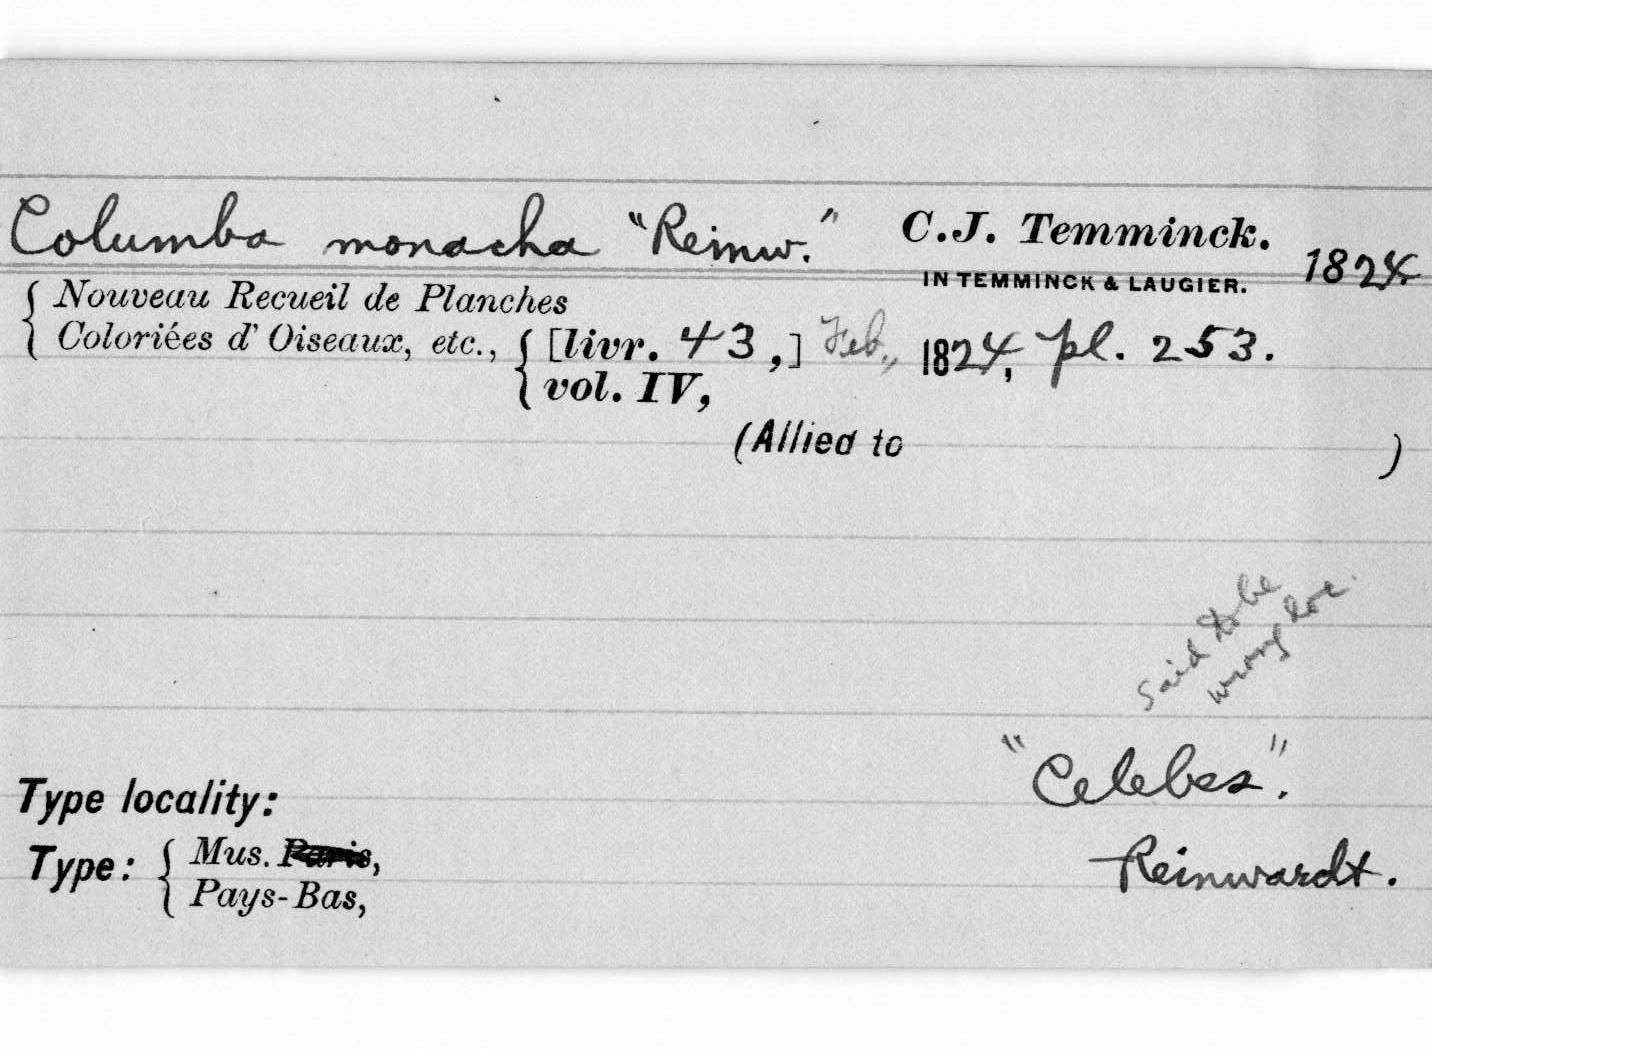 Columba monacha "Reinw." C.J. Temminck. 1824
IN TEMMINCK & LAUGIER.
Nouveau Recueil de Planches
Coloriées d' Oiseaux, etc., [livr. 43,] Feb., 1824, pl. 253.
vol. IV,
(Allied to )
said to be
wrong loc.
"Celebes".
Type locality:
Type: Mus. Paris, Reinwardt.
Pays-Bas,